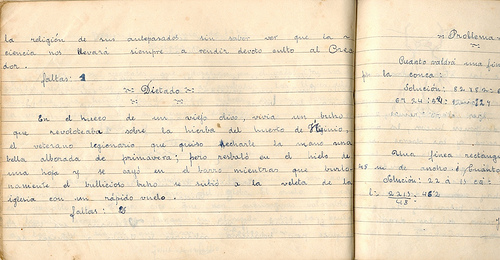 la religión de sus antepasados sin saber ver que la
ciencia nos llevará siempre a rendir devoto culto al Crea
dor.
faltas: 1
Dictado.
En el hueco de un viejo olivo, vivía un buho
que revoloteaba sobre la hierba del huerto de Higinio,
el veterano legionario que quiso echarle la mano una
bella alborada de primavera; pero resbaló en el hielo de
una hoja y se cayó en el barro mientras que burlo
namente el bullicioso buho se subió a la veleta de la
iglesia con un rápido vuelo.
faltas: 2
Problema
Cuanto valdrá una fin
la conca:
Solución:
Una finca rectang
45 m. de ancho ¿Cuánto
Solución: 22 a 13 ca
2213
45